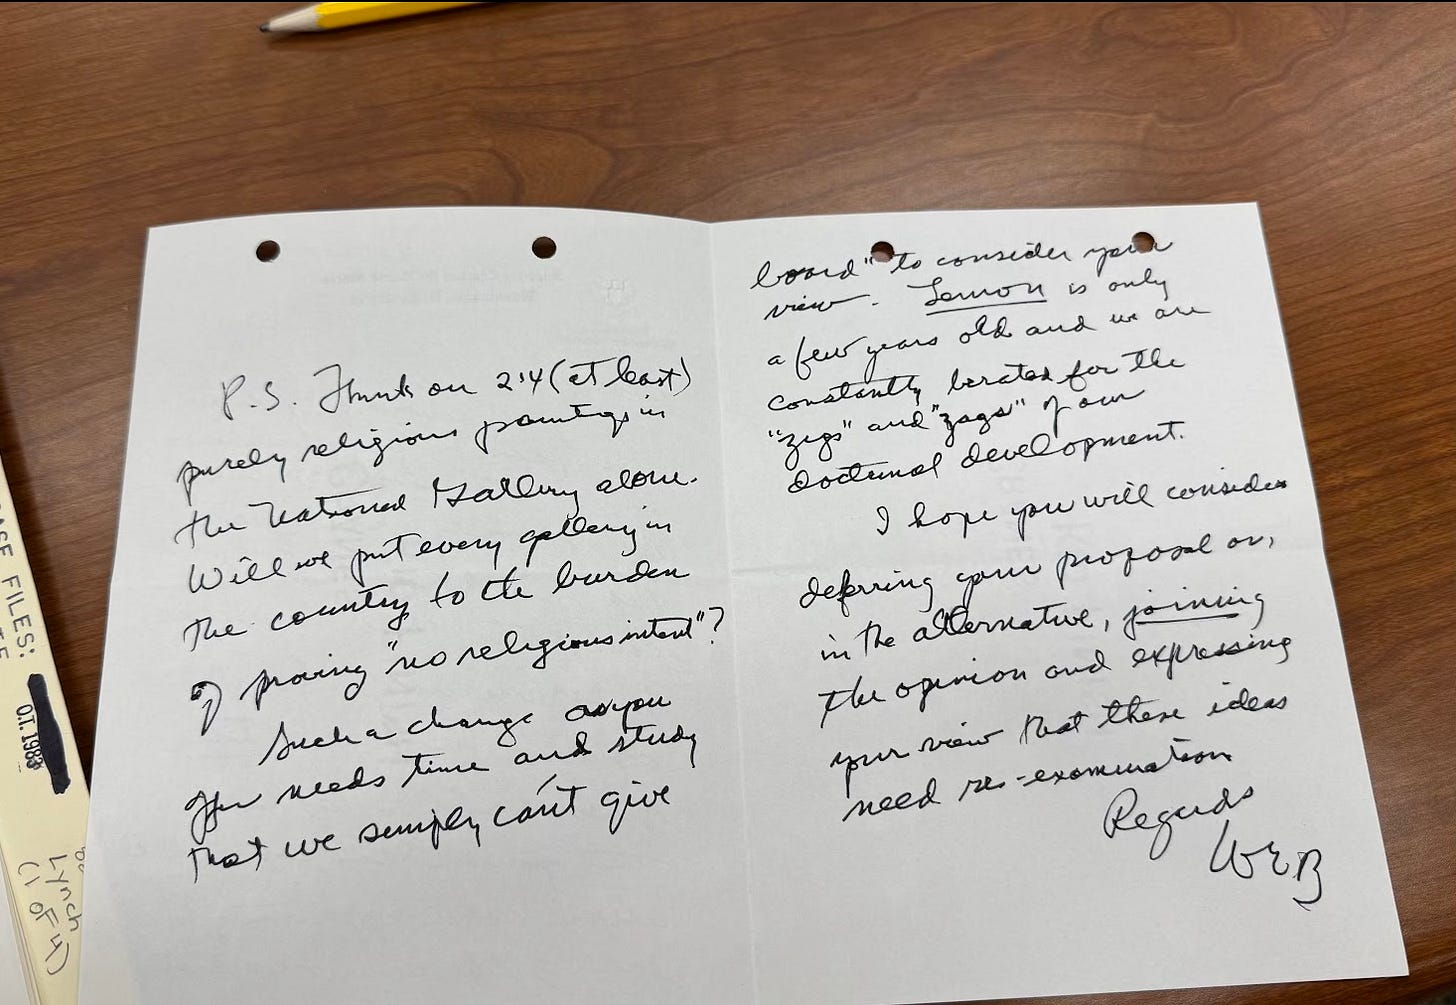 P.S. Think on 214 (at least)
purely religious paintings in
the National Gallery alone.
Will we put every gallery in
the country to the burden
of proving "no religious intent"?
Such a change as you
offer needs time and study
that we simply can't give
board" to consider your
view. Lemon is only
a few years old and we are
constantly berated for the
"zigs" and "zags" of our
doctrinal development.
I hope you will consider
deferring your proposal or,
in the alternative, joining
the opinion and expressing
your view that these ideas
need re-examination
Regards
WEB
ASE FILES:
O.T. 1983
Lynch
(1 of 4)